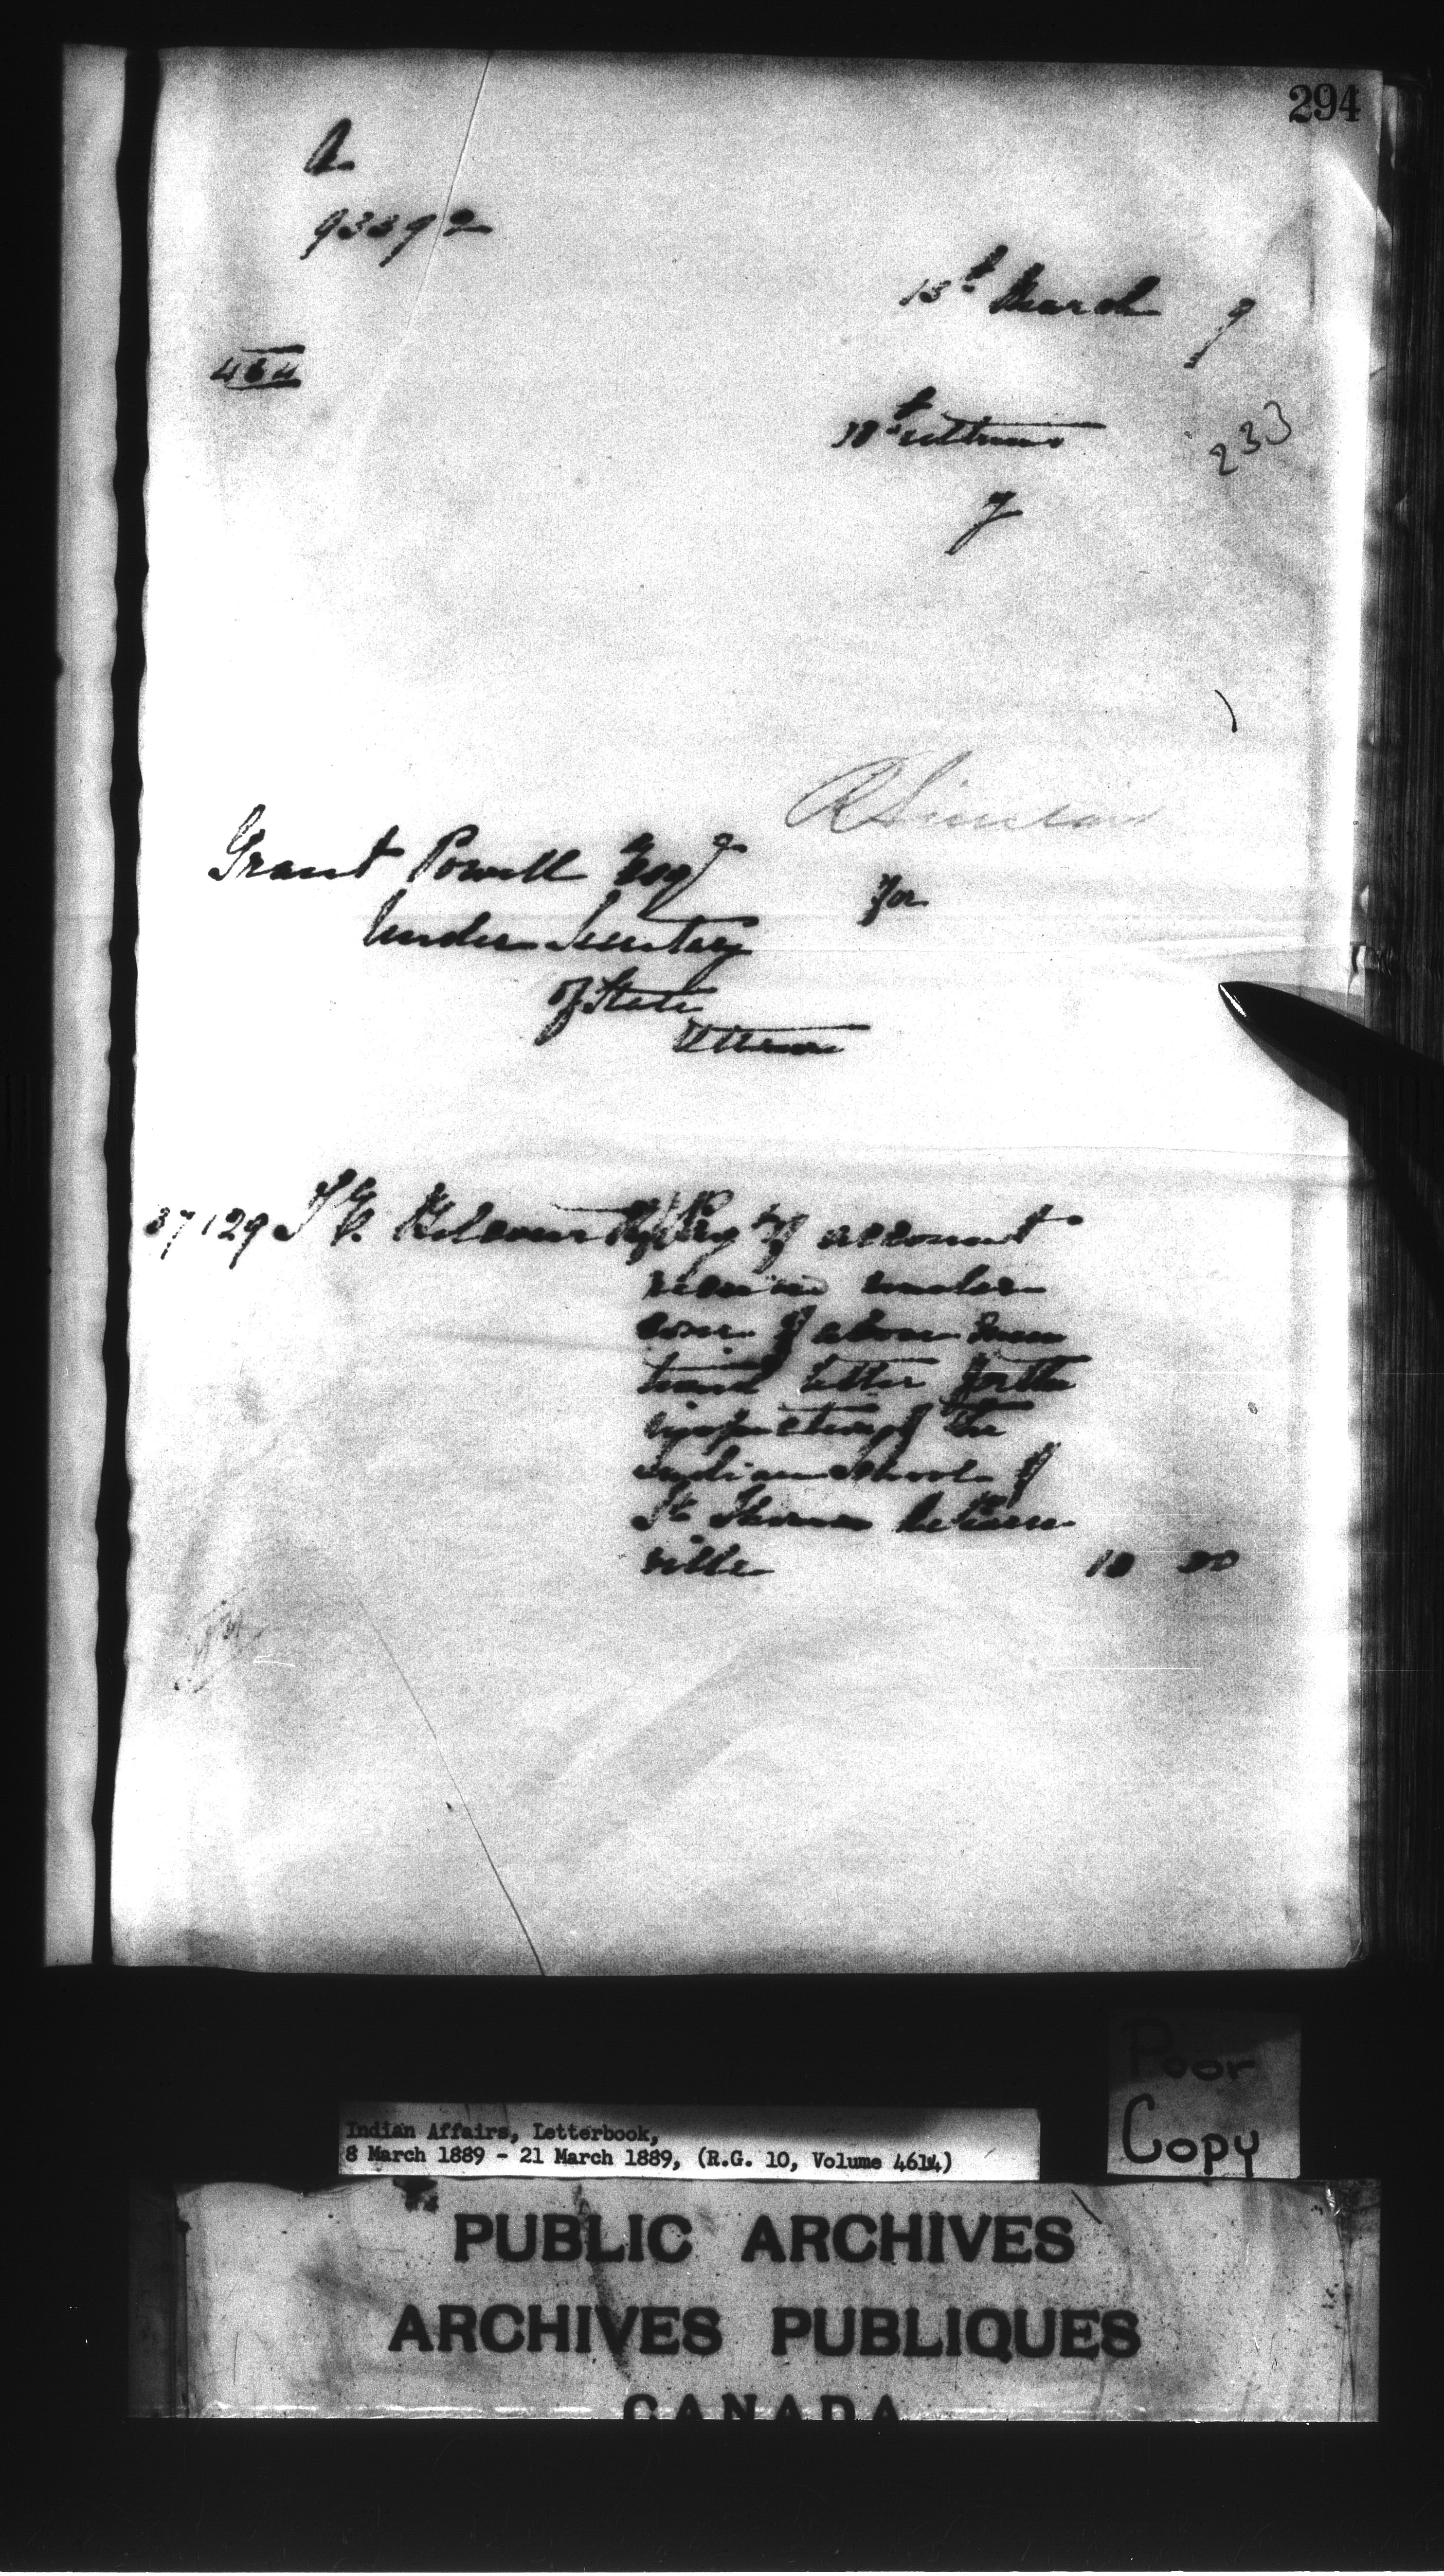 294
A
93392
13t March 9
464
18t ultimo
233
7
R Sinclair
Grant Powell Esqr
for
Under Secretary
of State
Ottawa
37129 of account
received under
cover of above men
tioned letter for the
inspection of the
Indian School of
St Thomas
ville 10 00
Poor
Copy
Indian Affairs, Letterbook,
8 March 1889 - 21 March 1889, (R.G. 10, Volume 4614)
PUBLIC ARCHIVES
ARCHIVES PUBLIQUES
CANADA